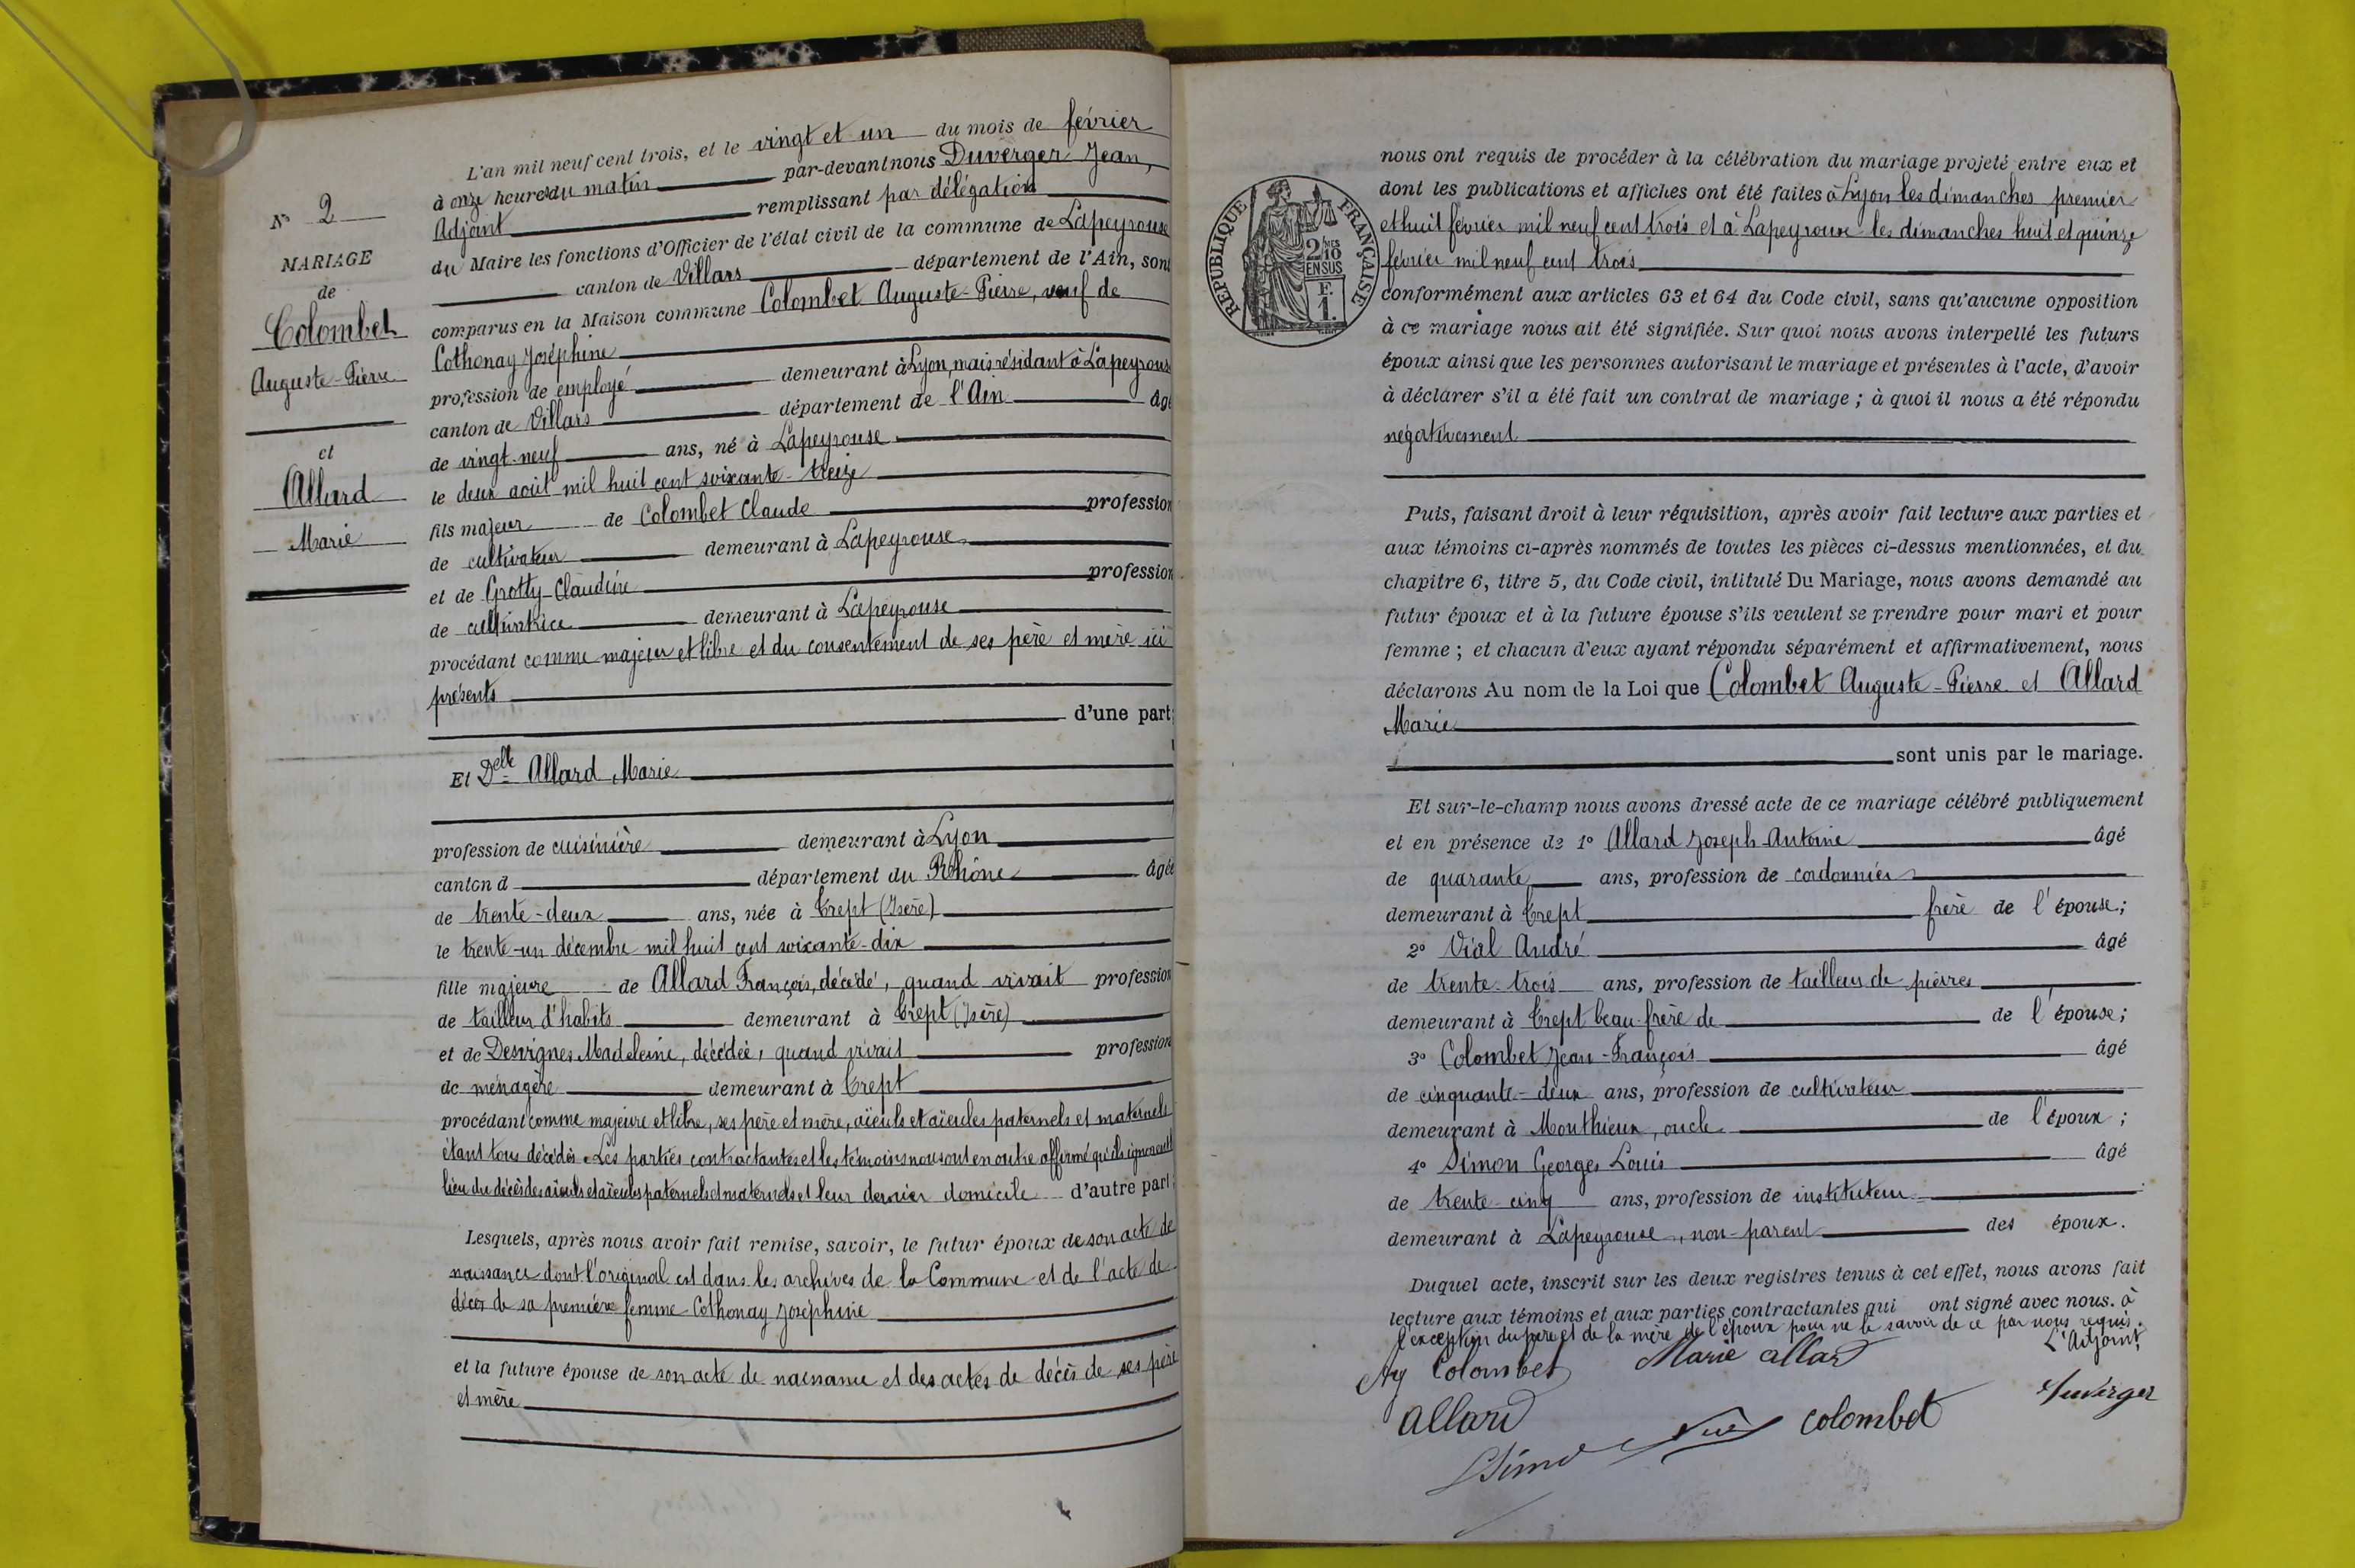 N° 2
MARIAGE
de
Colombet
Auguste-Pierre
et
Allard
Marie
L'an mil neuf cent trois, et le vingt et un du mois de février
à onze heures du matin par-devant nous Duverger Jean,
Adjoint remplissant par délégation
du Maire les fonctions d'Officier de l'état civil de la commune de Lapeyrouse
canton de Villars département de l'Ain, sont
comparus en la Maison commune Colombet Auguste-Pierre, veuf de
Cothonay Joséphine
profession de employé demeurant à Lyon, mais résidant à Lapeyrouse
canton de Villars département de l'Ain âgé
de vingt-neuf ans, né à Lapeyrouse
le deux août mil huit cent soixante-treize
fils majeur de Colombet Claude profession
de cultivateur demeurant à Lapeyrouse
et de Grotty Claudine profession
de cultivatrice demeurant à Lapeyrouse
procédant comme majeur et libre et du consentement de ses père et mère ici
présents
d'une part;
Et Delle Allard Marie
profession de cuisinière demeurant à Lyon
canton d département du Rhône âgée
de trente-deux ans, née à Crept (Isère)
le trente-un décembre mil huit cent soixante-dix
fille majeure de Allard François, décédé, quand vivait profession
de tailleur d'habits demeurant à Crept (Isère)
et de Desvignes Madeleine, décédée, quand vivait profession
de ménagère demeurant à Crept
procédant comme majeure et libre, ses père et mère, aïeuls et aïeules paternels et maternels
étant tous décédés. Les parties contractantes et les témoins nous ont en outre affirmé qu'ils ignorent le
lieu du décès des aïeuls et aïeules paternels et maternels et leur dernier domicile d'autre part;
Lesquels, après nous avoir fait remise, savoir, le futur époux de son acte de
naissance dont l'original est dans les archives de la Commune et de l'acte de
décès de sa première femme Cothonay Joséphine
et la future épouse de son acte de naissance et des actes de décès de ses père
et mère
RÉPUBLIQUE FRANÇAISE
2/10
EN SUS
F.
1.
nous ont requis de procéder à la célébration du mariage projeté entre eux et
dont les publications et affiches ont été faites à Lyon les dimanches premier
et huit février mil neuf cent trois et à Lapeyrouse les dimanches huit et quinze
février mil neuf cent trois
conformément aux articles 63 et 64 du Code civil, sans qu'aucune opposition
à ce mariage nous ait été signifiée. Sur quoi nous avons interpellé les futurs
époux ainsi que les personnes autorisant le mariage et présentes à l'acte, d'avoir
à déclarer s'il a été fait un contrat de mariage ; à quoi il nous a été répondu
négativement
Puis, faisant droit à leur réquisition, après avoir fait lecture aux parties et
aux témoins ci-après nommés de toutes les pièces ci-dessus mentionnées, et du
chapitre 6, titre 5, du Code civil, intitulé Du Mariage, nous avons demandé au
futur époux et à la future épouse s'ils veulent se prendre pour mari et pour
femme ; et chacun d'eux ayant répondu séparément et affirmativement, nous
déclarons Au nom de la Loi que Colombet Auguste-Pierre et Allard
Marie
sont unis par le mariage.
Et sur-le-champ nous avons dressé acte de ce mariage célébré publiquement
et en présence de 1° Allard Joseph Antoine âgé
de quarante ans, profession de cordonnier
demeurant à Crept frère de l'épouse;
2° Vial André âgé
de trente-trois ans, profession de tailleur de pierres
demeurant à Crept beau-frère de de l'épouse;
3° Colombet Jean-François âgé
de cinquante-deux ans, profession de cultivateur
demeurant à Monthieux, oncle de l'époux ;
4° Simon Georges Louis âgé
de trente cinq ans, profession de instituteur
demeurant à Lapeyrouse, non-parent des époux.
Duquel acte, inscrit sur les deux registres tenus à cet effet, nous avons fait
lecture aux témoins et aux parties contractantes qui ont signé avec nous. à
l'exception du père et de la mère de l'époux pour ne le savoir de ce par nous requis.
L'Adjoint,
Ag Colombet Marie allard
Duverger
allard
colombet
Simo